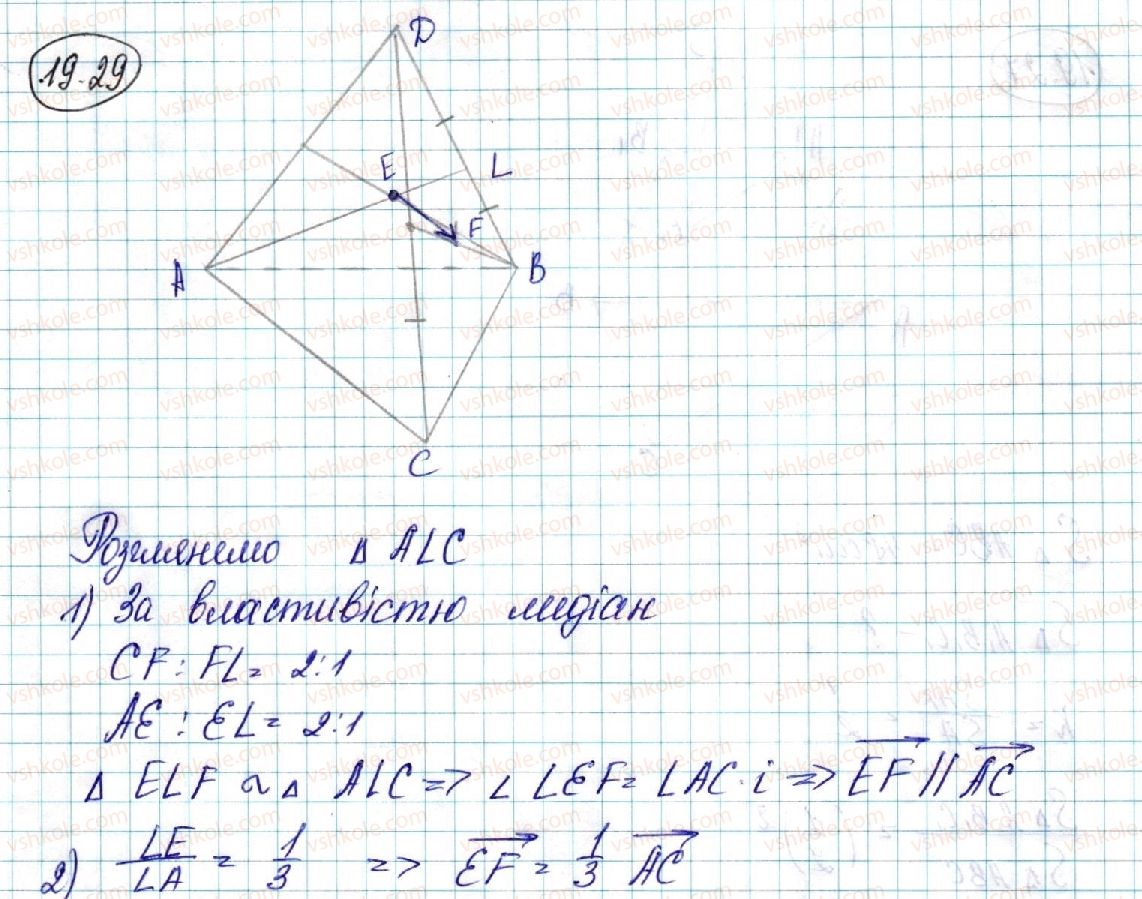 19.29
D
E
L
F
A
B
C
Розглянемо △ ALC
1) За властивістю медіан
CF : FL = 2:1
AE : EL = 2:1
△ ELF ~ △ ALC => ∠ LEF = ∠ LAC і => EF || AC
2) LE/LA = 1/3 => EF = 1/3 AC
vshkole.com